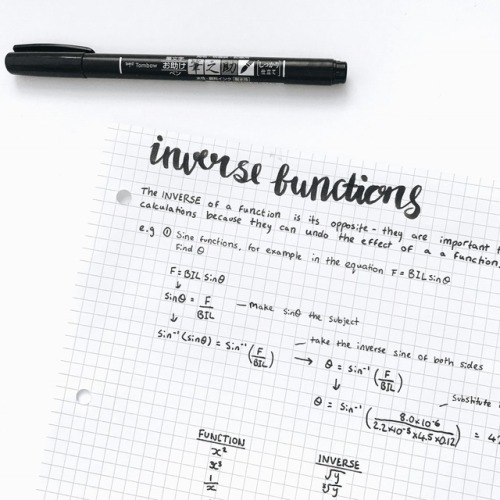 Tombow お助け ペン 筆之助 しっかり 仕立て
inverse functions
The INVERSE of a function is its opposite - they are important
calculations because they can undo the effect of a a function.
e.g ① Sine functions, for example in the equation F = BIL sinθ
Find θ
F = BIL sinθ
↓
sinθ = F/BIL — make sinθ the subject
↓
sin⁻¹(sinθ) = sin⁻¹(F/BIL) — take the inverse sine of both sides
→ θ = sin⁻¹(F/BIL)
↓
θ = sin⁻¹(8.0×10⁻⁶/2.2×10⁻⁵×4.5×0.12) = — substitute
FUNCTION INVERSE
x² √y
x³ ∛y
1/x